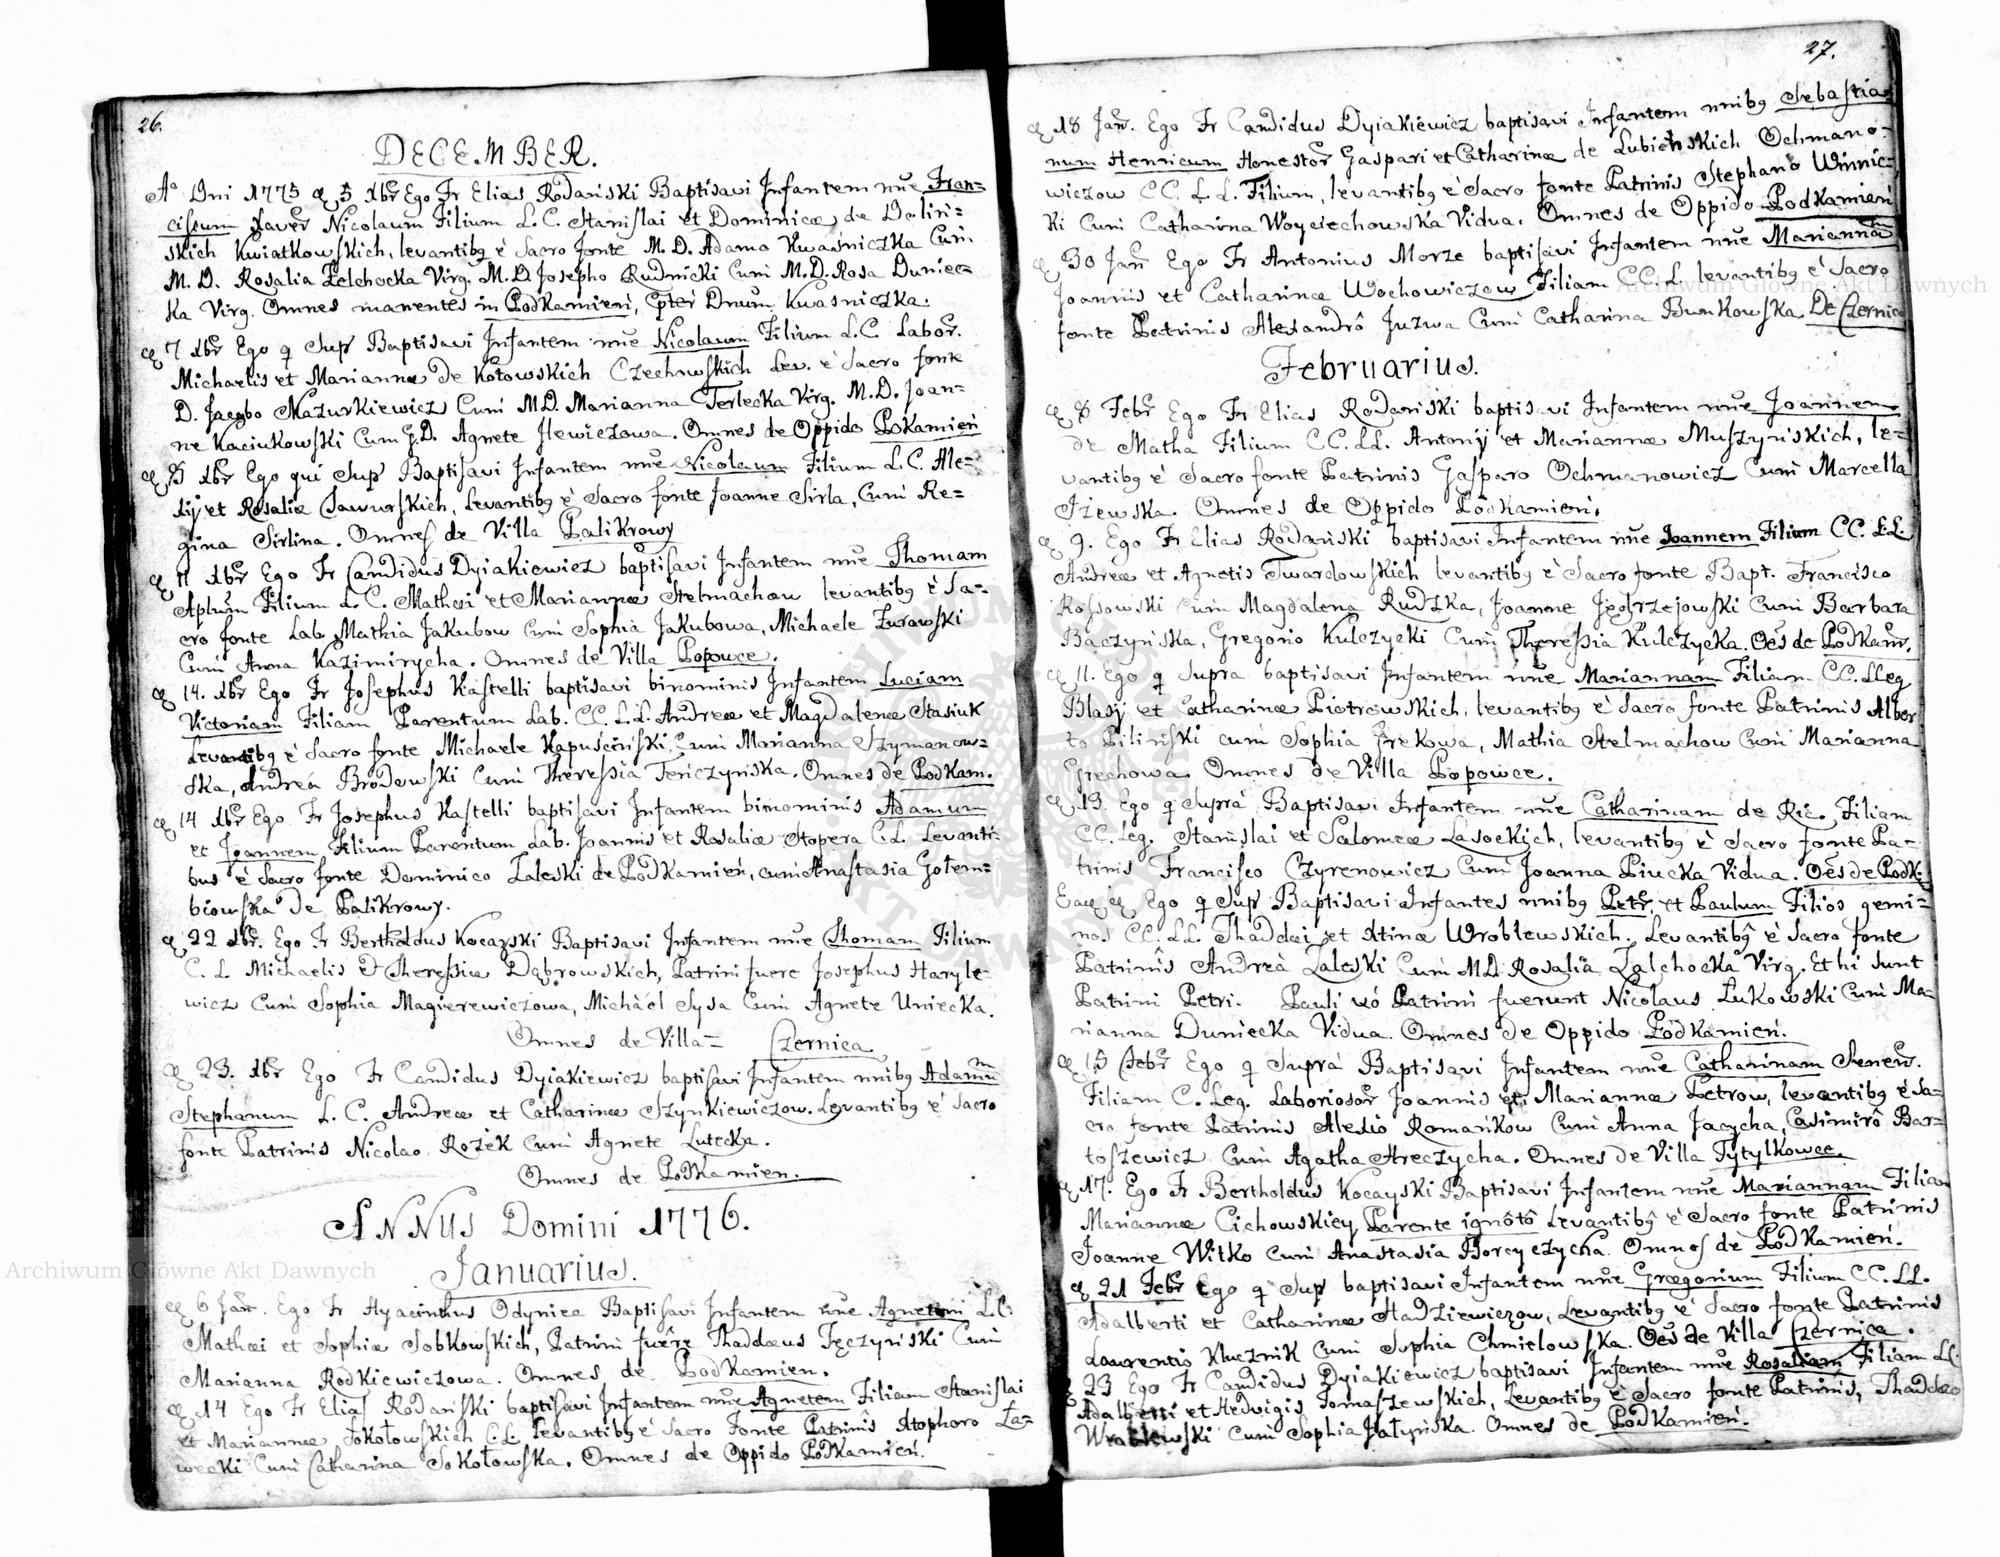 26.
DECEMBER.
Aº Dni 1775 5 Xbr Ego Fr Elias Rodański Baptisavi Infantem nne Fran=
ciscum Xaver Nicolaum Filium L. C. Stanislai et Dominicæ de Dolin=
skich Kwiatkowskich, levantibg è Sacro fonte M. D. Adamo Kwaśniczka Cum
M. D. Rosalia Zelchocka Virg. M. D. Josepho Rudnicki Cum M. D. Rosa Duniec=
ka Virg. Omnes manentes in Podkamień, Dnum Kwasniczka.
7 Xbr Ego q Sup Baptisavi Infantem nne Nicolaum Filium L. C. Labor.
Michaelis et Mariannæ de Kotowskich Czechowskich Lev. è Sacro fonte
D. Jacobo Mazurkiewicz Cum MD. Marianna Terlecka Virg. M. D. Joan=
ne Kaciukowski Cum G. D. Agnete Ilewiczowa. Omnes de Oppido Pokamień
8 Xbr Ego qui Sup Baptisavi Infantem nne Nicolaum Filium L. C. Ale=
xij et Rosaliæ Jaworskich, Levantibg è Sacro fonte Joanne Sirla, Cum Re=
gina Sirlina. Omnes de Villa Palikrowy
11 Xbr Ego Fr Candidus Dyiakiewicz baptisavi Infantem nne Thomam
Aplum Filium L. C. Mathæi et Mariannæ Stelmachow levantibg è Sa=
cro fonte Lab. Mathia Jakubow Cum Sophia Jakubowa, Michaele Zurawski
Cum Anna Kazimirycha. Omnes de Villa Popowce.
14. Xbr Ego Fr Josephus Kastelli baptisavi binominis Infantem Luciam
Victoriam Filiam Parentum Lab. CC. LL. Andreæ et Magdalenæ Stasiuk
Levantibg è Sacro fonte Michaele Kapuściński, Cum Marianna Szymanow=
ska, Andrea Brodowski Cum Theressia Tenczyńska. Omnes de Podkam.
14 Xbr Ego. Fr Josephus Kastelli baptisavi Infantem binominis Adamum
et Joannem Filium Parentum Lab. Joannis et Rosaliæ Stopera C. L. Levanti=
bus è Sacro fonte Dominico Zaleski de Podkamień, cum Anastasia Gołem=
biowska de Palikrowy.
22 Xbr. Ego Fr Bertholdus Kocayski Baptisavi Infantem nne Thomam Filium
C. L Michaelis & Theressiæ Dąbrowskich, Patrini fuere Josephus Haryle=
wicz Cum Sophia Magierewiczowa, Michael Sysa Cum Agnete Uniecka.
Omnes de Villa= Czernica
23. Xbr Ego Fr Candidus Dyiakiewicz baptisavi Infantem nnibg Adamum
Stephanum L. C. Andreæ et Catharinæ Szynkiewiczow. Levantibg è Sacro
fonte Patrinis Nicolao Rożek Cum Agnete Lutecka.
Omnes de Podkamien.
ANNUS Domini 1776.
Januarius.
6 Jan. Ego Fr Hyacinthus Odyniec Baptisavi Infantem nne Agnetem L. C.
Mathæi et Sophiæ Sobkowskich, Patrini fuere Thaddæus Tęczyński Cum
Marianna Rodkiewiczowa. Omnes de Podkamien.
14 Ego Fr Elias Rodański baptisavi Infantem nne Agnetem Filiam Stanislai
et Mariannæ Sokołowskich C. L. levantibg è Sacro Fonte Patrinis Xtophoro Za=
wecki Cum Catharina Sokołowska. Omnes de Oppido Podkamień.
27.
18 Jan. Ego Fr Candidus Dyiakiewicz baptisavi Infantem nnibg Sebastia
num Henricum Honestor Gaspari et Catharinæ de Lubieńskich Ochmano=
wiczow CC. LL. Filium, levantibg è Sacro fonte Patrinis Stephano Winnic=
ki Cum Catharina Woyciechowska Vidua. Omnes de Oppido Podkamień
30 Jan Ego Fr Antonius Morze baptisavi Infantem nne Mariannam
Joannis et Catharinæ Wochowiczow Filiam CC. L. levantibg è Sacro
fonte Patrinis Alexandrô Juzwa Cum Catharina Bunkowska De Czernica
Februarius.
8 Febr Ego Fr Elias Rodański baptisavi Infantem nne Joannem
de Matha Filium CC. LL. Antonij et Mariannæ Muszyńskich, le=
vantibg è Sacro fonte Patrinis Gasparo Ochmanowicz Cum Marcella
Iżewska. Omnes de Oppido Podkamień.
9. Ego Fr Elias Rodański baptisavi Infantem nne Joannem Filium CC. LL.
Andreæ et Agnetis Twardowskich levantibg è Sacro fonte Bapt. Francisco
Rossowski Cum Magdalena Rudzka, Joanne Jędrzejowski Cum Barbara
Baczyńska, Gregorio Kulczycki Cum Theressia Kulczycka. Oes de Podkam.
11. Ego q Supra baptisavi Infantem nne Mariannam Filiam CC. LLeg
Blasij et Catharinæ Piotrowskich, levantibg è Sacro fonte Patrinis Alber
to Piliński cum Sophia Grekowa, Mathia Stelmachow Cum Marianna
Grechowa Omnes de Villa Popowce.
13. Ego q Suprà Baptisavi Infantem nne Catharinam de Ric. Filiam
CC. Leg. Stanislai et Salomeæ Lasockich, levantibg è Sacro fonte Pa=
trinis Francisco Czyrenowicz Cum Joanna Piucka Vidua. Oes de Podk.
Ead Ego q Sup Baptisavi Infantes nnibg Petr. et Paulum Filios gemi=
nos CC. LL. Thaddæi et Xtinæ Wroblewskich. Levantibg è Sacro fonte
Patrinis Andreà Zaleski Cum MD Rosaliâ Zalchocka Virg. Et hi sunt
Patrini Petri. Pauli vó Patrini fuerunt Nicolaus Lukowski Cum Ma=
rianna Duniecka Vidua. Omnes de Oppido Podkamień.
15 Febr Ego q Suprà Baptisavi Infantem nne Catharinam Senens.
Filiam C. Leg. Laboriosor Joannis et Mariannæ Petrow, levantibg è Sa=
cro fonte Patrinis Alexio Romańkow Cum Anna Jacycha, Casimirô Bar=
toszewicz Cum Agatha Hreczycha. Omnes de Villa Tytylkowce.
17. Ego Fr Bertholdus Kocayski Baptisavi Infantem nne Mariannam Filiam
Mariannæ Cichowskiey Parente ignôtô Levantibg è Sacro fonte Patrinis
Joanne Witko Cum Anastasia Borcyczycha. Omnes de Podkamień.
21 Febr Ego q Sup baptisavi Infantem nne Grægorium Filium CC. LL.
Adalberti et Catharinæ Hadziewiczow, Levantibg è Sacro fonte Patrinis
Laurentio Klucznik Cum Sophia Chmielowska. Oes de Villa Czernica.
23 Ego Fr Candidus Dyiakiewicz baptisavi Infantem nne Rosaliam Filiam LC
Adalberti et Hedwigis Tomaszewskich, Levantibg è Sacro fonte Patrinis, Thaddæo
Wroblewski Cum Sophia Hałyńska. Omnes de Podkamień.
Archiwum Główne Akt Dawnych
Archiwum Główne Akt Dawnych